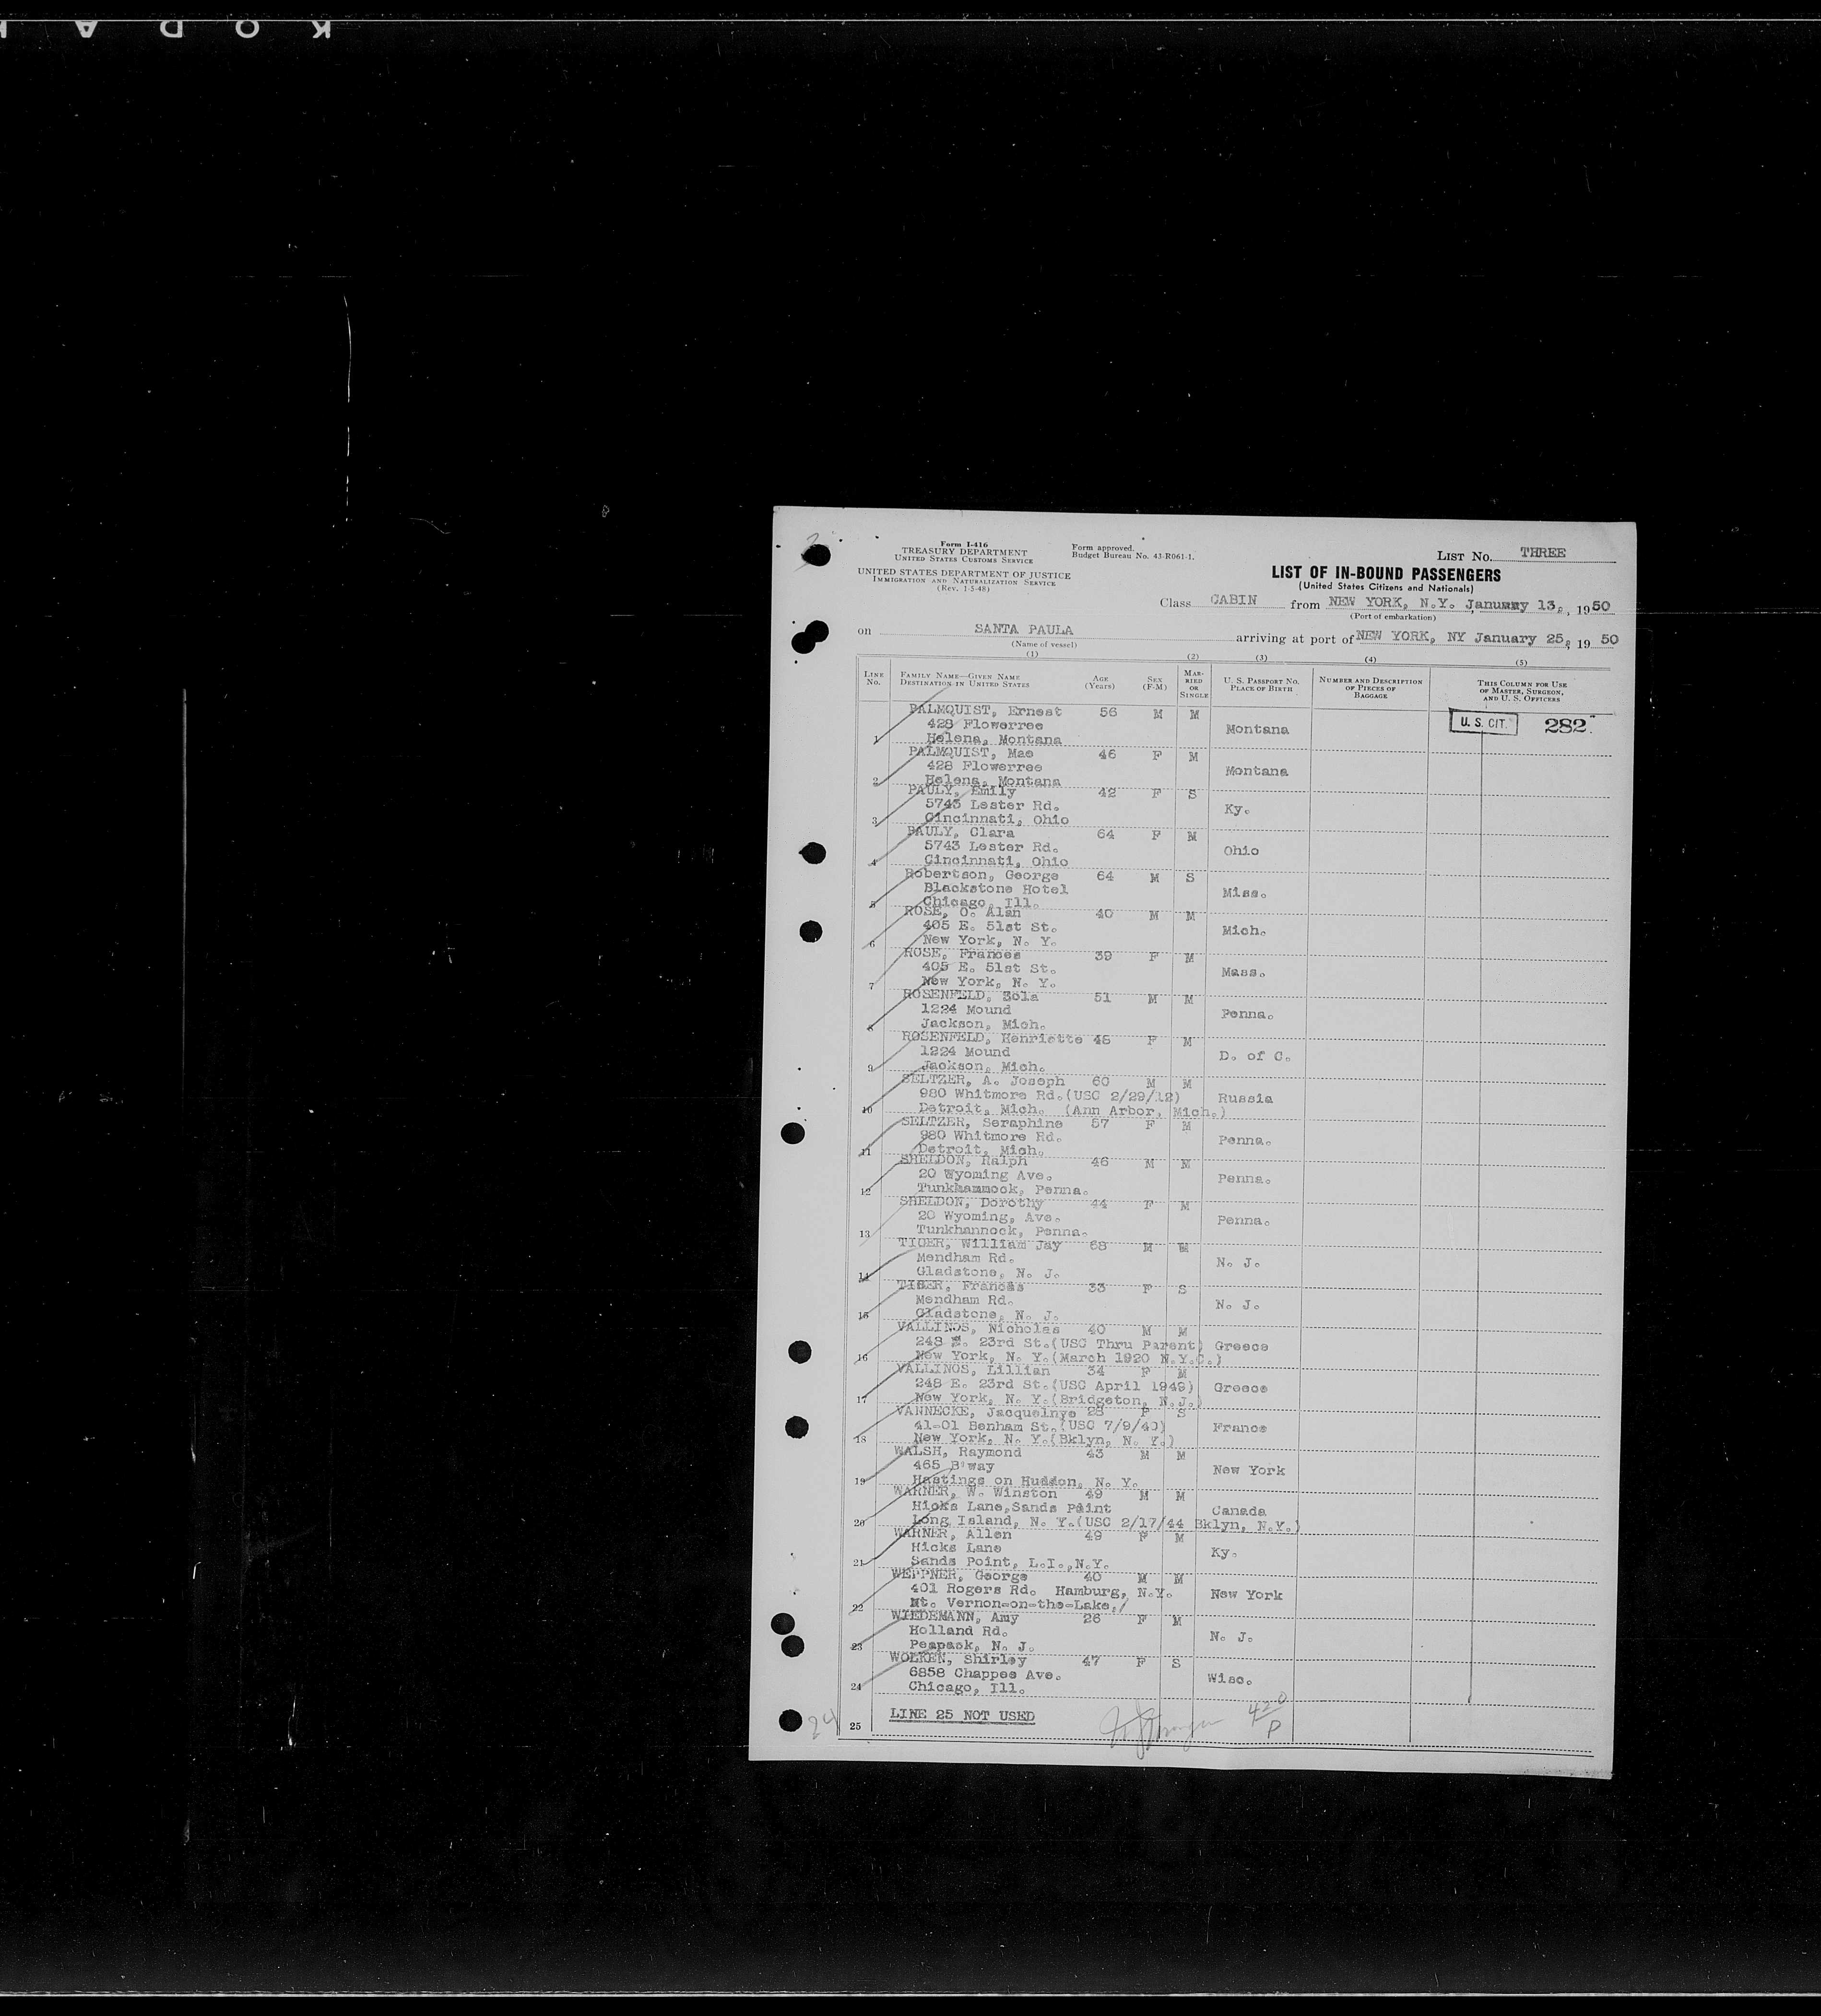 KODAK
Form I-416
TREASURY DEPARTMENT
UNITED STATES CUSTOMS SERVICE
Form approved.
Budget Bureau No. 43-R061-1.
LIST NO. THREE
UNITED STATES DEPARTMENT OF JUSTICE
IMMIGRATION AND NATURALIZATION SERVICE
(Rev. 1-5-48)
LIST OF IN-BOUND PASSENGERS
(United States Citizens and Nationals)
Class CABIN from NEW YORK, N.Y. January 13, 1950
(Port of embarkation)
on SANTA PAULA arriving at port of NEW YORK, NY January 25, 1950
(Name of vessel)
(1) (2) (3) (4) (5)
LINE No. FAMILY NAME—GIVEN NAME DESTINATION IN UNITED STATES AGE (Years) SEX (F-M) MARRIED OR SINGLE U. S. PASSPORT NO. PLACE OF BIRTH NUMBER AND DESCRIPTION OF PIECES OF BAGGAGE THIS COLUMN FOR USE OF MASTER, SURGEON, AND U. S. OFFICERS
PALMQUIST, Ernest 56 M M U. S. CIT. 282
428 Flowerree Montana
1 Helena, Montana
PALMQUIST, Mae 46 F M
428 Flowerree Montana
2 Helena, Montana
PAULY, Emily 42 F S
5743 Lester Rd. Ky.
3 Cincinnati, Ohio
PAULY, Clara 64 F M
5743 Lester Rd. Ohio
4 Cincinnati, Ohio
Robertson, George 64 M S
Blackstone Hotel Miss.
5 Chicago, Ill.
ROSE, O. Alan 40 M M
405 E. 51st St. Mich.
6 New York, N. Y.
ROSE, Frances 39 F M
405 E. 51st St. Mass.
7 New York, N. Y.
ROSENFELD, Zola 51 M M
1224 Mound Penna.
8 Jackson, Mich.
ROSENFELD, Henriette 48 F M
1224 Mound D. of C.
9 Jackson, Mich.
SELTZER, A. Joseph 60 M M
980 Whitmore Rd.(USC 2/29/12) Russia
10 Detroit, Mich. (Ann Arbor, Mich.)
SELTZER, Seraphine 57 F M
980 Whitmore Rd. Penna.
11 Detroit, Mich.
SHELDON, Ralph 46 M M
20 Wyoming Ave. Penna.
12 Tunkhammock, Penna.
SHELDON, Dorothy 44 F M
20 Wyoming, Ave. Penna.
13 Tunkhannock, Penna.
TIGER, William Jay 68 M
Mendham Rd. N. J.
14 Gladstone, N. J.
TIGER, Frances 33 F S
Mendham Rd. N. J.
15 Gladstone, N. J.
VALLINOS, Nicholas 40 M M
248 E. 23rd St.(USC Thru Parent) Greece
16 New York, N. Y.(March 1920 N.Y.C.)
VALLINOS, Lillian 34 F M
248 E. 23rd St.(USC April 1949) Greece
17 New York, N. Y.(Bridgeton, N.J.)
VANNECKE, Jacquelnye 28 F S
41-01 Benham St.(USC 7/9/40) France
18 New York, N. Y.(Bklyn, N. Y.)
WALSH, Raymond 43 M M
465 B'way New York
19 Hastings on Hudson, N. Y.
WARNER, W. Winston 49 M M
Hicks Lane,Sands Point Canada
20 Long Island, N. Y.(USC 2/17/44 Bklyn, N.Y.)
WARNER, Allen 49 F M
Hicks Lane Ky.
21 Sands Point, L.I.,N.Y.
WEPPNER, George 40 M M
401 Rogers Rd. Hamburg, N.Y. New York
22 Mt. Vernon-on-the-Lake,/
WIEDEMANN, Amy 26 F M
Holland Rd. N. J.
23 Peapack, N. J.
WOLKEN, Shirley 47 F S
6858 Chappee Ave. Wisc.
24 Chicago, Ill.
25 LINE 25 NOT USED
24
420
P